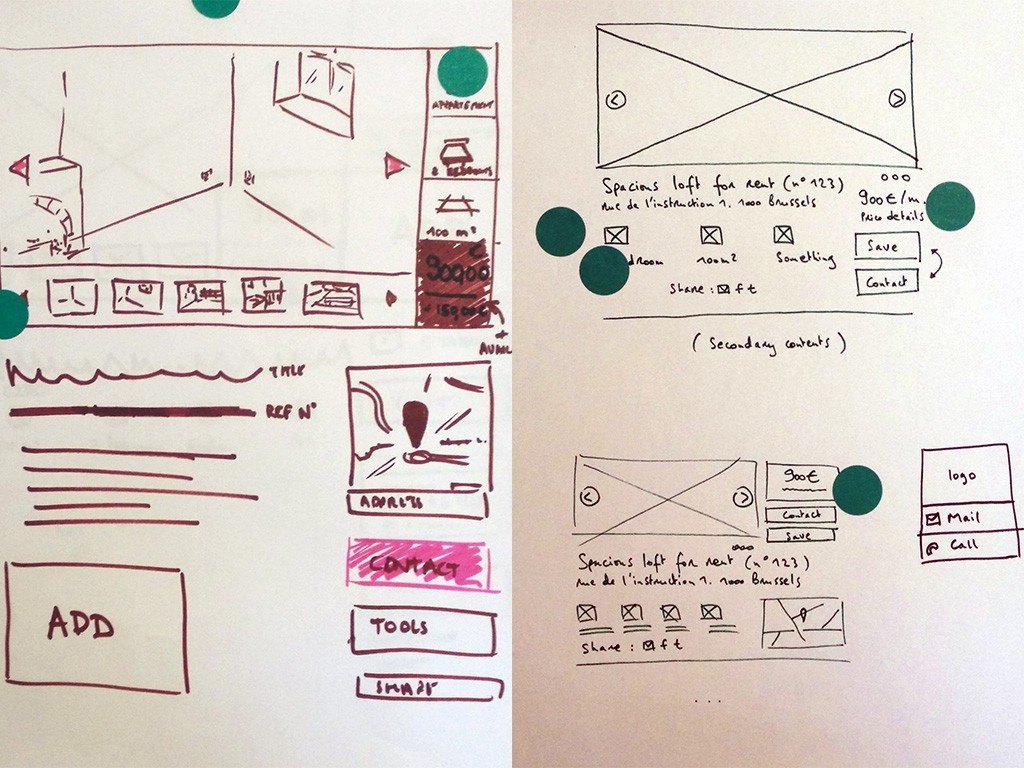 APPARTEMENT
2 BEDROOMS
100 m²
€
90000
150,00€
+
AVAIL
TITLE
REF N°
ADDRESS
CONTACT
ADD
TOOLS
SHARE
Spacious loft for rent (n° 123)
rue de l'instruction 1. 1000 Brussels
900€/m.
Price details
droom
room2
Something
Save
Contact
Share : f t
(Secondary contents)
900€
Contact
Save
Spacious loft for rent (n° 123)
rue de l'instruction 1. 1000 Brussels
Share : f t
...
logo
Mail
Call